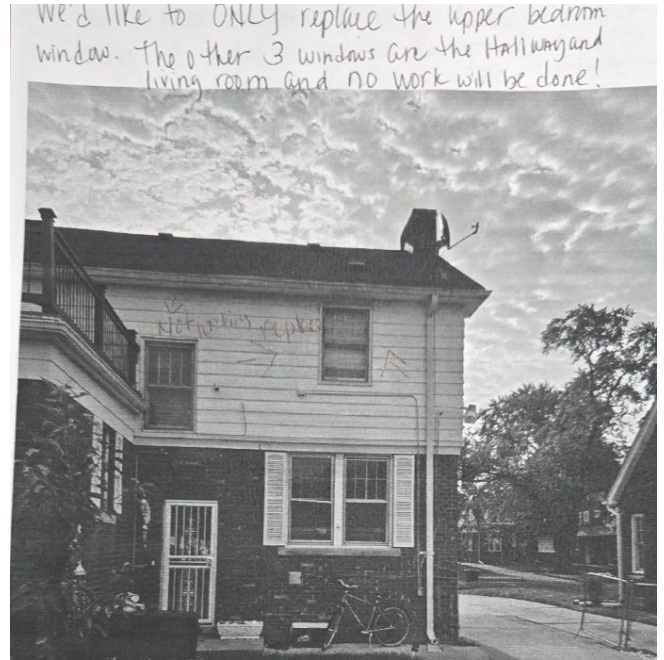 We'd like to ONLY replace the upper bedroom
window. The other 3 windows are the Hallway and
living room and no work will be done!
Not working replace